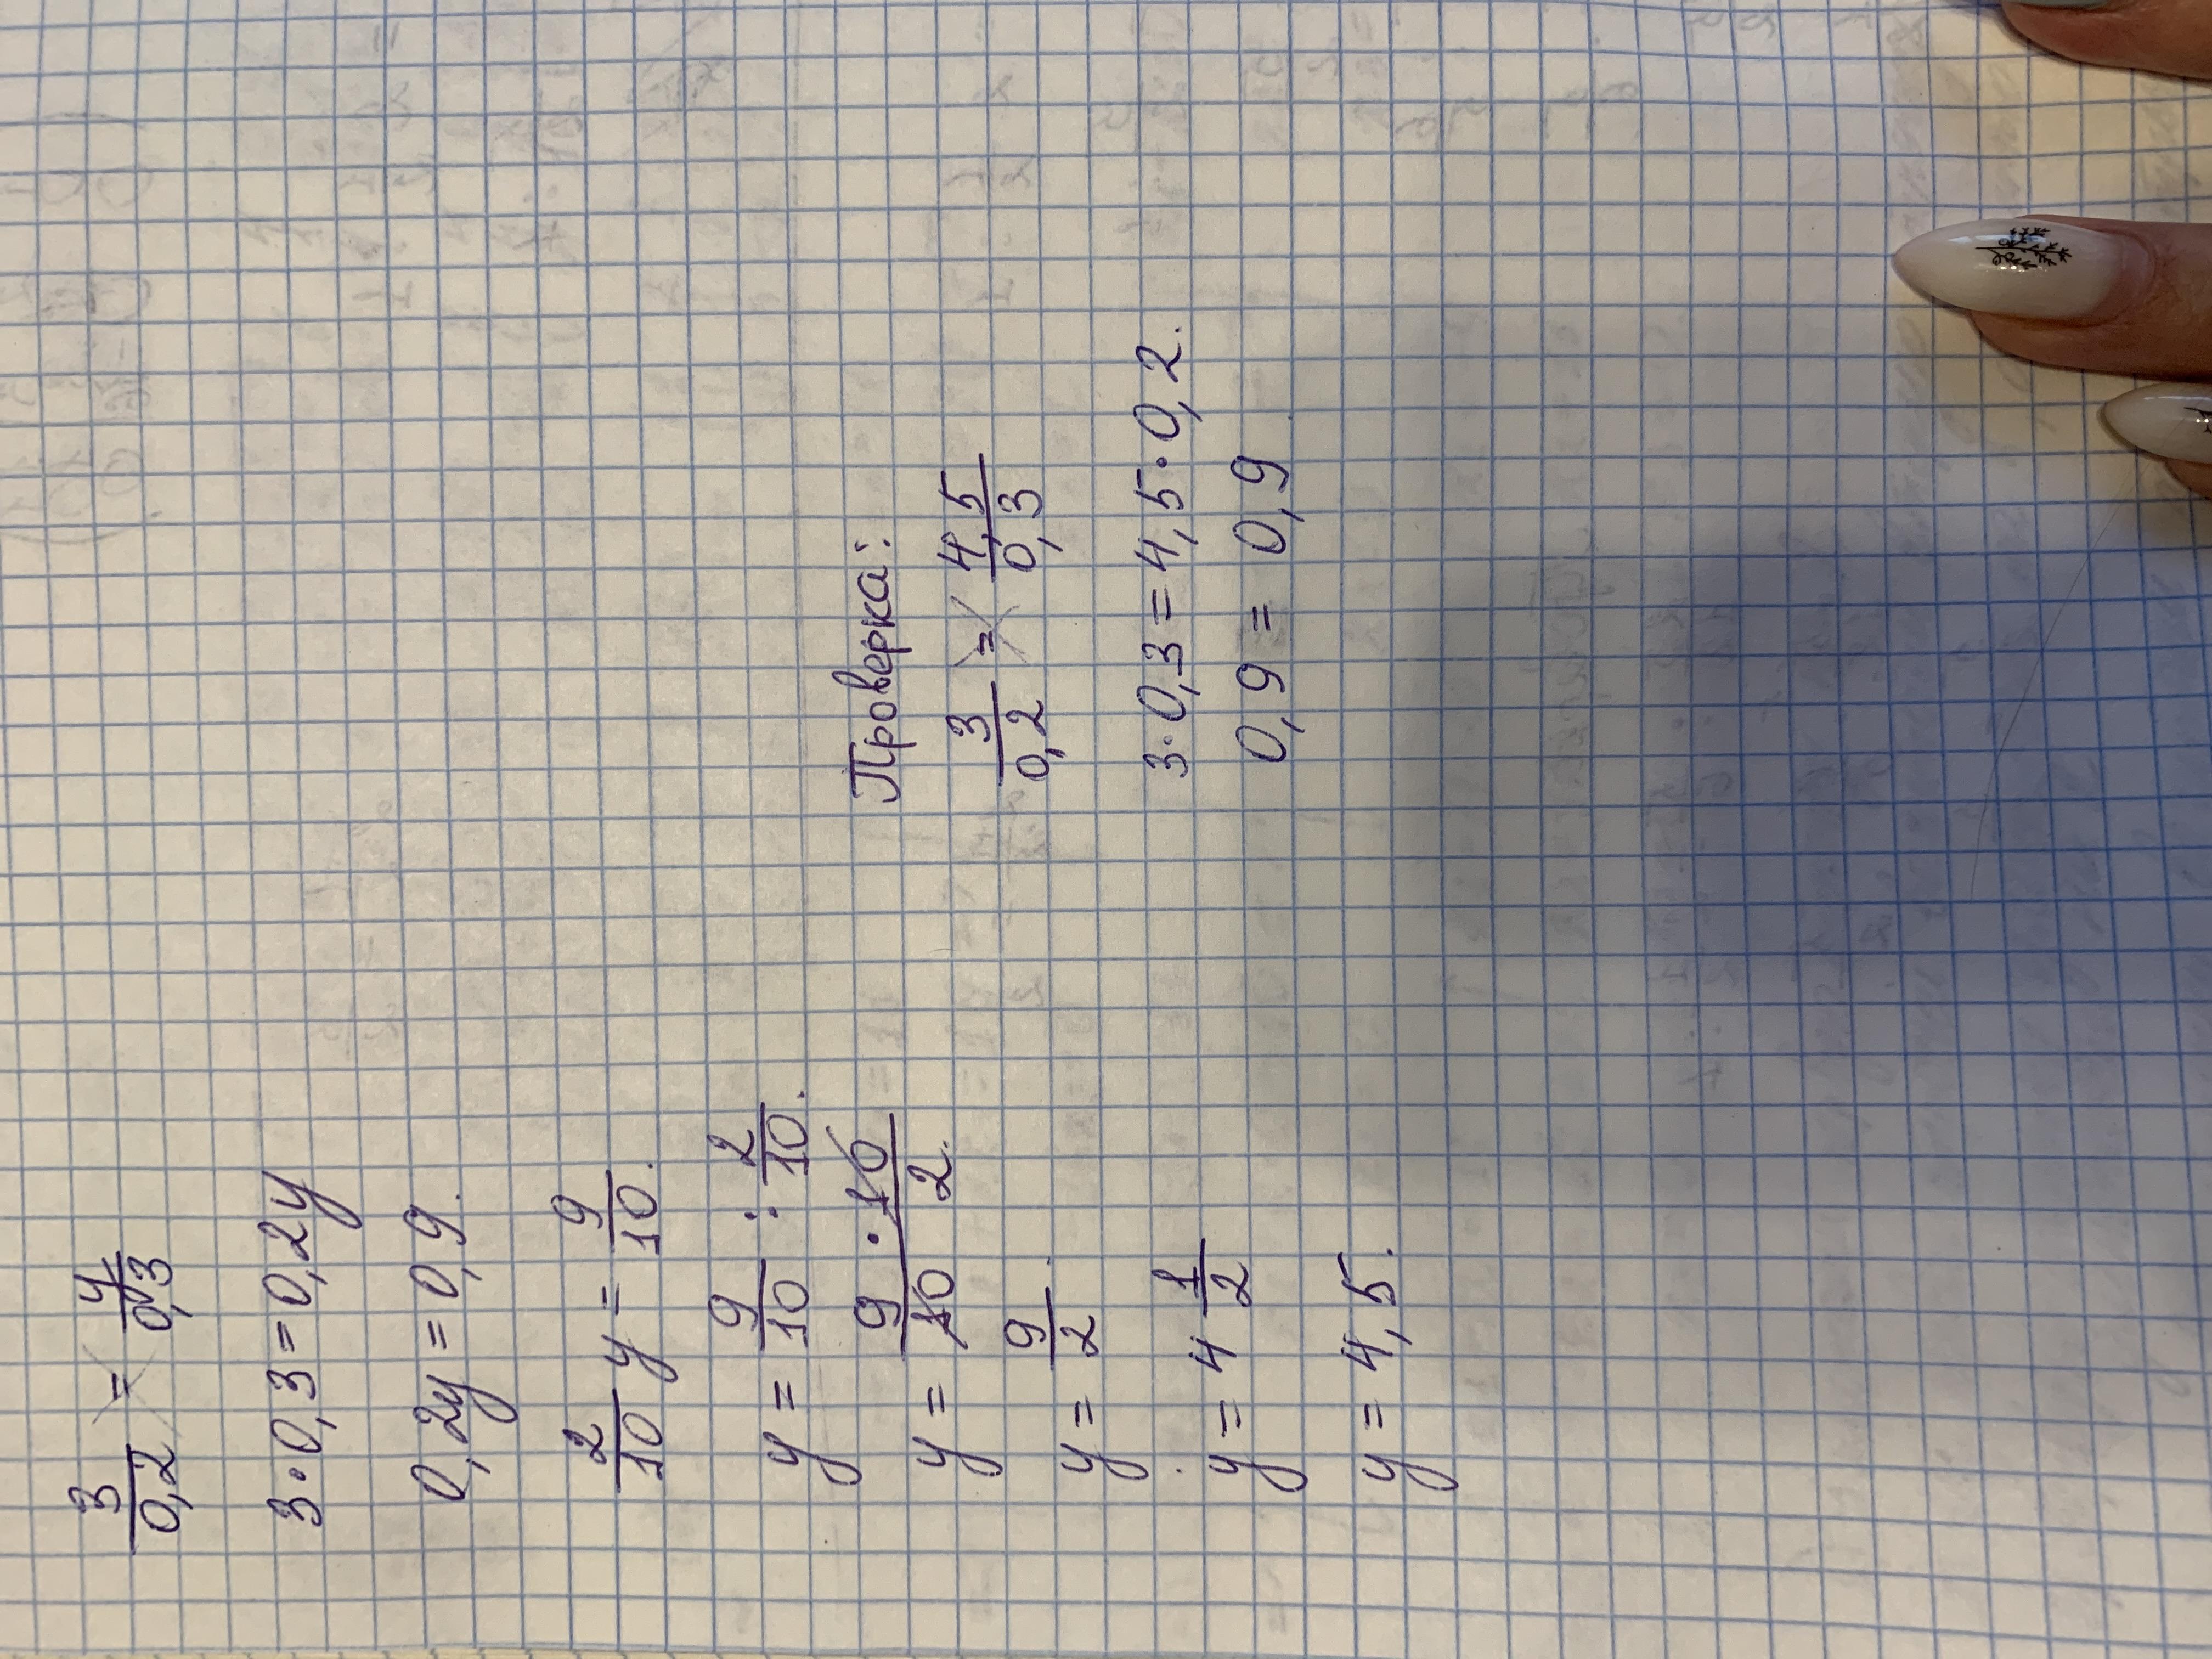 3/0,2 = y/0,3
3·0,3=0,2y
0,2y=0,9.
2/10 y = 9/10.
y = 9/10 : 2/10.
y = 9·10/10 2.
y = 9/2.
y = 4 1/2
y = 4,5.
Проверка:
3/0,2 = 4,5/0,3
3·0,3=4,5·0,2.
0,9 = 0,9